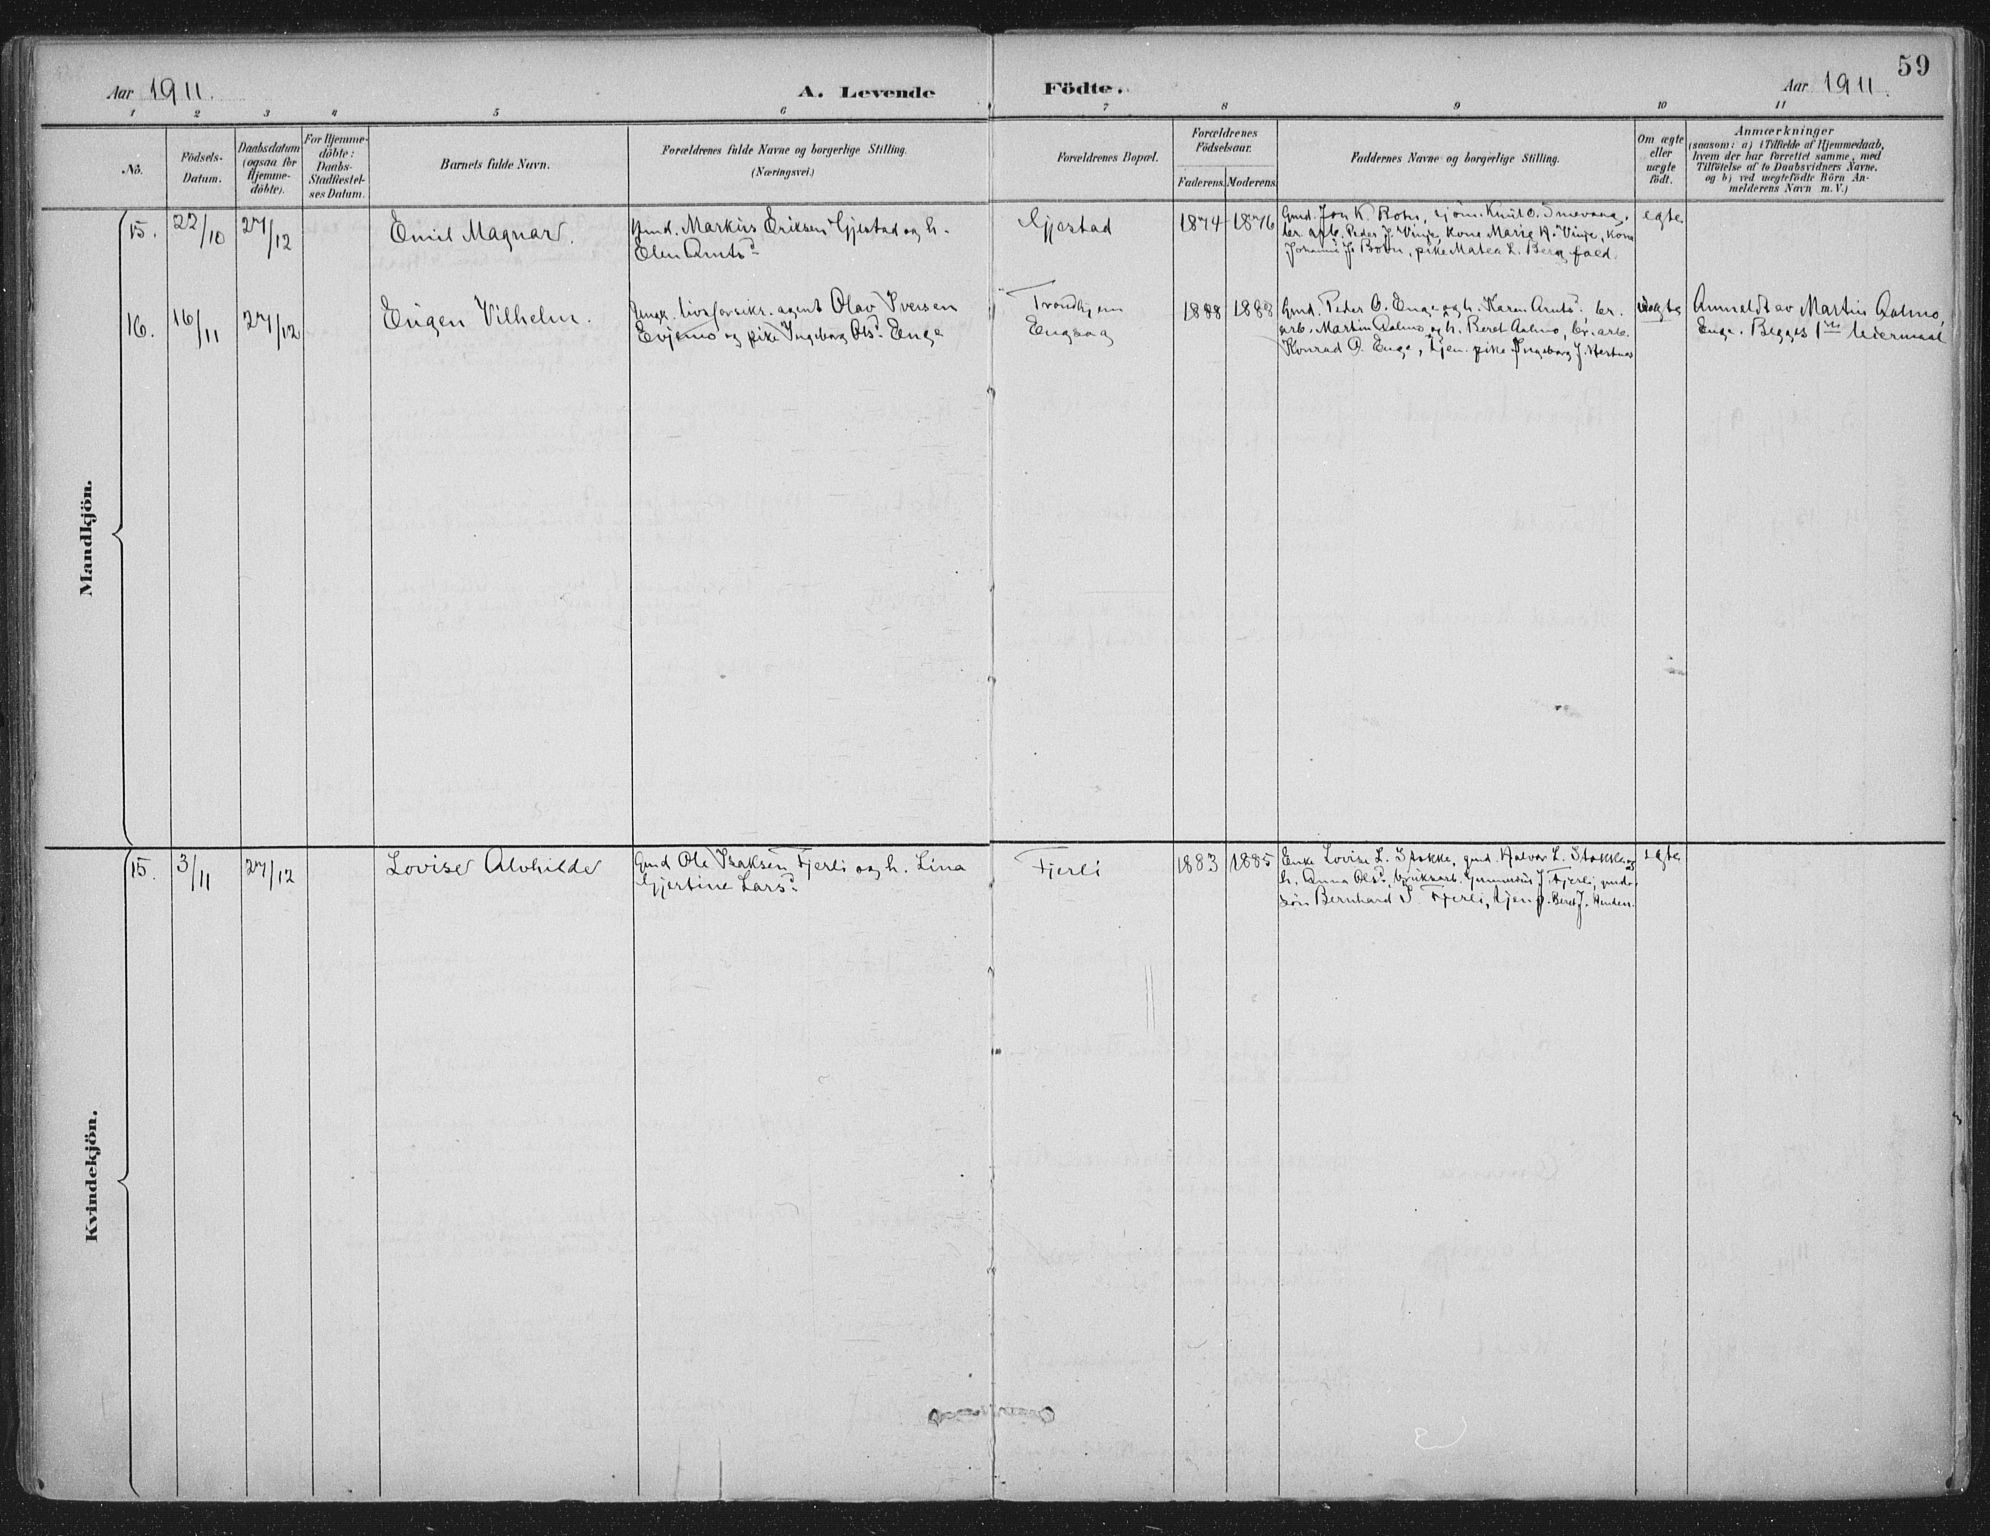 59
Aar 1911. A. Levende Födte. Aar 1911.
1 2 3 4 5 6 7 8 9 10 11
No.
Födsels-
Datum.
Daabsdatum
(ogsaa for
Hjemme-
döbte).
For Hjemme-
döbte:
Daabs-
Stadfæstel-
ses Datum.
Barnets fulde Navn.
Forældrenes fulde Navne og borgerlige Stilling.
(Næringsvei.)
Forældrenes Bopæl.
Forældrenes
Födselsaar.
Faderens. Moderens.
Faddernes Navne og borgerlige Stilling.
Om ægte
eller
uægte
födt.
Anmærkninger
(saasom: a) i Tilfælde af Hjemmedaab,
hvem der har forrettet samme, med
Tilföielse af to Daabsvidners Navne,
og b) ved uægtefödte Börn An-
melderens Navn m. V.)
Mandkjön.
15. 22/10 27/12 Emil Magnar.
Gmd. Markus Eriksen Gjestad og h.
Elen Arntsd
Gjestad
1874 1876
Gmd. Jon K. Botn, sjöm. Knut O. Smevaag,
br. arb. Peder J. Vinje, kone Marie A. Vinje, kone
J. Botn, pike Matea L. Berg
egte
16. 16/11 27/12 Eugen Vilhelm.
Ungk. livsforsikr. agent Olav Iversen
Evjemo og pike Ingeborg Olsd Enge
Trondhjem
Engsag
1888 1888
Gmd. Peder O. Enge og h. Karen Arntsd, br.
arb. Martin Aalmo og h. Beret Aalmo, br. arb.
Konrad O. Enge, tjen. pike Ingeborg J.
uegte
Anmeldt av Martin Aalmo,
Enge. Begges 1ste leiermaal
Kvindekjön.
15. 3/11 27/12 Lovise Alvhilde
Gmd Ole Isaksen Fjerli og h. Lina
Gjertine Larsd
Fjerli
1883 1885
Enke Lovise L. Stokke, gmd. Halvor L. Stokke og
h. Anna Olsd, bruksarb. J. Fjerli, gmd.
sön Bernhard I. Fjerli, tjen p. Beret J.
egte